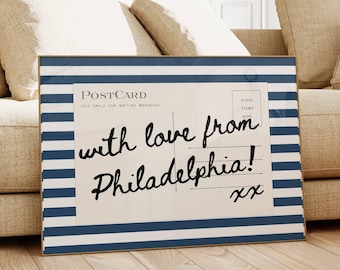 POSTCARD
THIS SPACE FOR WRITING MESSAGES
PLACE
STAMP
HERE
with love from
Philadelphia!
xx